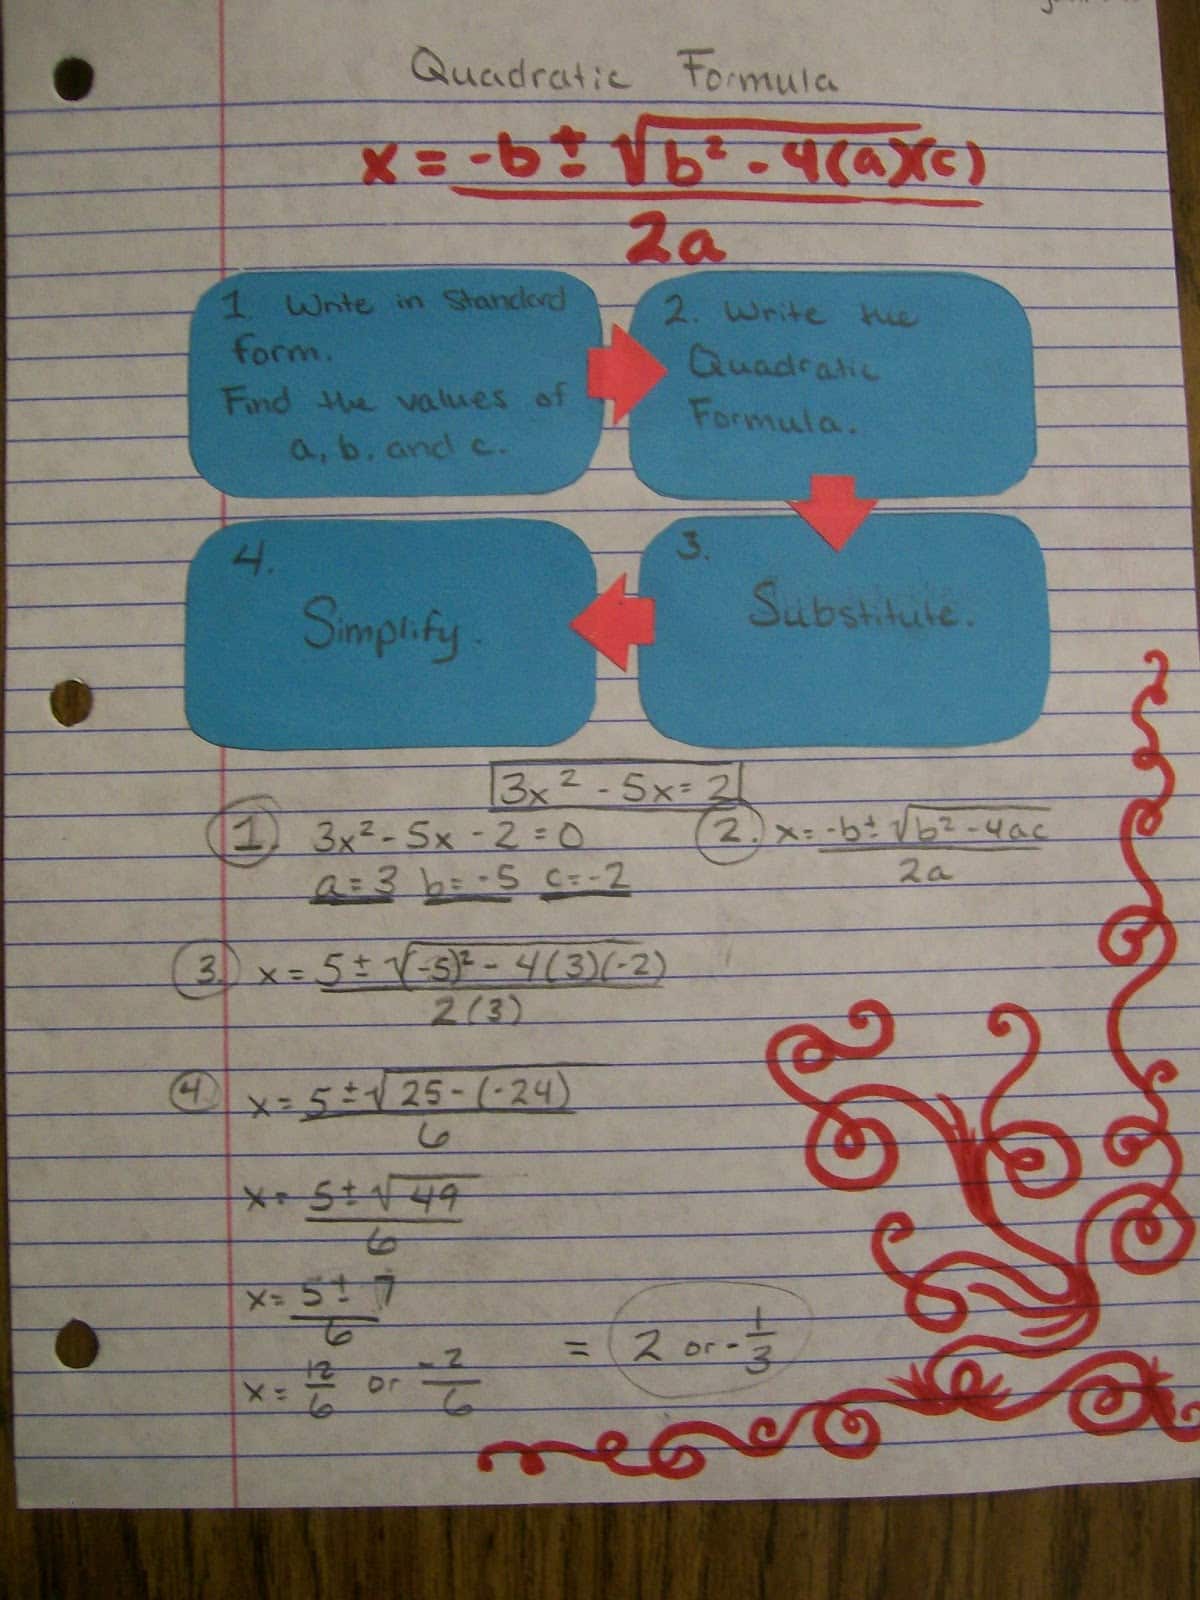 Quadratic Formula
x = -b ± √b² - 4(a)(c)
2a
1 Write in Standard
form.
Find the values of
a, b, and c.
2. Write the
Quadratic
Formula.
3.
Substitute.
4.
Simplify.
3x² - 5x = 2
1. 3x² - 5x - 2 = 0
a = 3 b = -5 c = -2
2. x = -b ± √b² - 4ac
2a
3. x = 5 ± √(-5)² - 4(3)(-2)
2(3)
4. x = 5 ± √25 - (-24)
6
x = 5 ± √49
6
x = 5 ± 7
6
x = 12/6 or -2/6 = 2 or -1/3